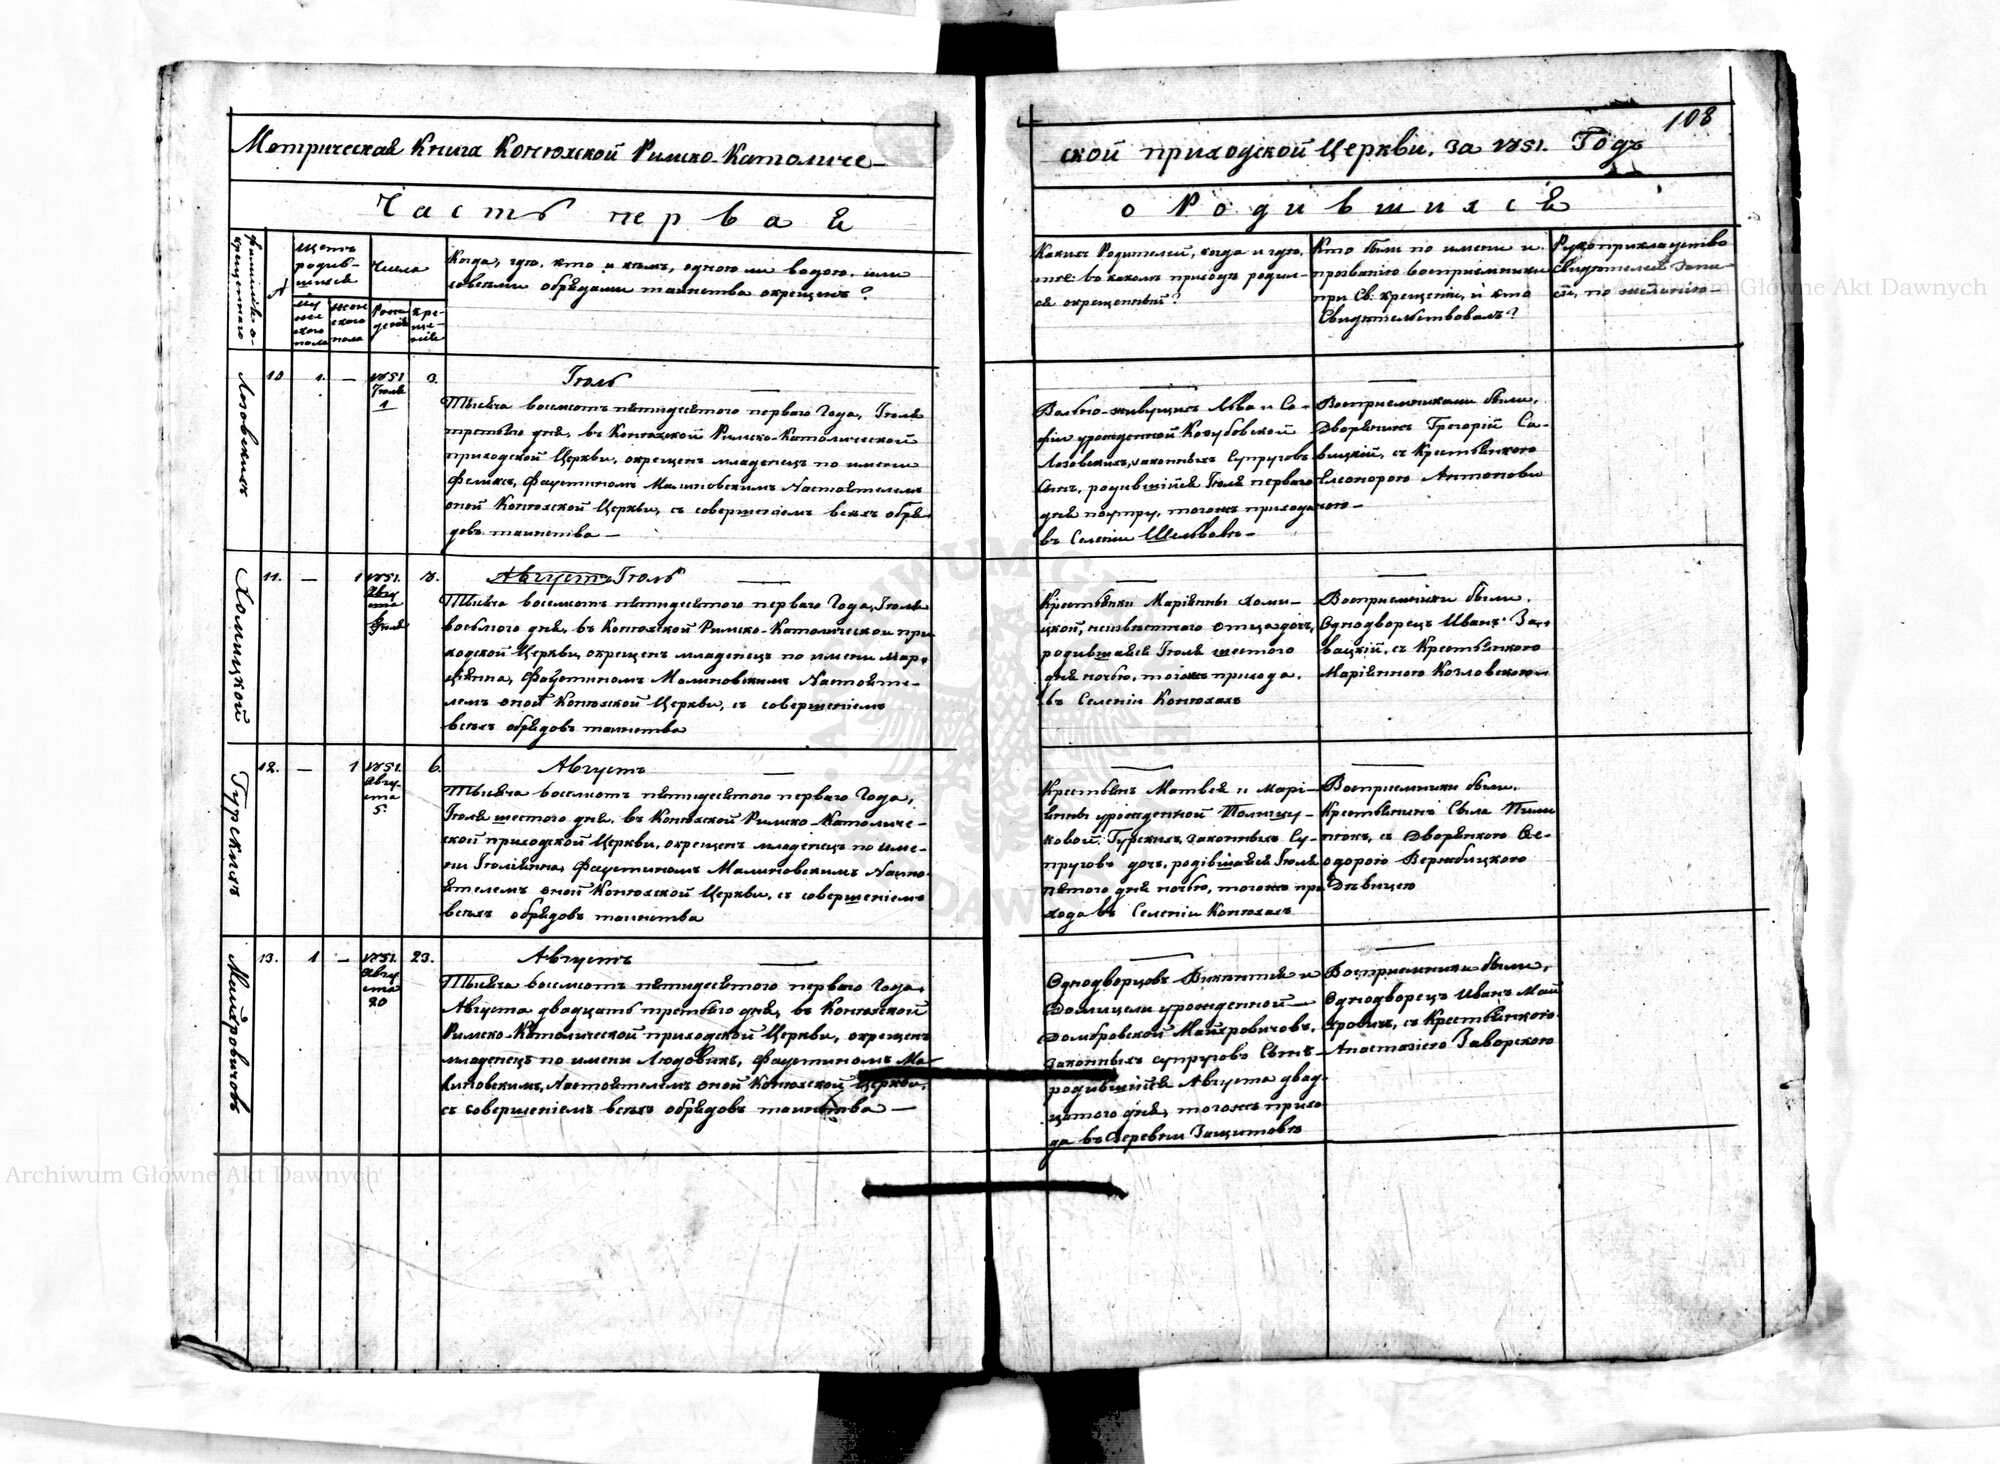 108
Метрическая Книга Конюхской Римско-Католиче-
ской приходской Церкви, за 1851. Годъ
Часть первая
о Родившихся
Фамилія окрещеннаго
№
Щетъ родившихся
мужескаго пола
женскаго пола
Числа
Рождения
Крещенія
Когда, гдѣ, кто и кѣмъ, одною ли водою, или
со всѣми обрядами таинства окрещенъ?
Какихъ Родителей, когда и гдѣ,
тоє въ какомъ приходѣ родил-
ся окрещенный?
Кто былъ по имени и
прозванію воспріемники
при Св. крещеніи, и кто
Свидѣтельствовалъ?
Рукоприкладство
Свидѣтелей запи-
си, по желанію
Лозовскихъ
10
1.
—
1851
Іюля
1
3.
Іюль
Тысяча восемсотъ пятидесятого перваго Года, Іюля
третьяго дня, въ Конюхской Римско-Католической
приходской Церкви, окрещенъ младенецъ по имени
Феликсъ, Фаустиномъ Малиновскимъ Настоятелемъ
оной Конюхской Церкви, съ совершеніемъ всѣхъ обря-
довъ таинства —
Вольно-живущихъ Льва и Со-
фіи урожденной Козубовской
Лозовскихъ, законныхъ Супруговъ
Сынъ, родившійся Іюля перваго
дня поутру, тогожъ прихода
въ Селеніи Шельвовѣ —
Воспріемниками были,
Дворянинъ Григорій Са-
вицкій, съ Крестьянкою
Елеонорою Антонови
ною —
Хомицкой
11.
—
1
1851.
Авгу
ста
6
Іюля
8.
Августъ Іюль
Тысяча восемсотъ пятидесятого перваго Года, Іюля
восьмого дня, въ Конюхской Римско-Католической при
ходской Церкви, окрещенъ младенецъ по имени Мар-
цянна, Фаустиномъ Малиновскимъ Настояте-
лемъ оной Конюхской Церкви, съ совершеніемъ
всѣхъ обрядовъ таинства
Крестьянки Маріянны Хоми-
цкой, неизвѣстного отца дочь,
родившаяся Іюля шестого
дня ночью, тогожъ прихода,
въ Селеніи Конюхахъ
Воспріемники были,
Однодворецъ Иванъ За-
вацкій, съ Крестьянкою
Маріянною Козловскою —
Гурскихъ
12.
—
1
1851.
Авгу-
ста
5
6.
Августъ
Тысяча восемсотъ пятидесятого перваго Года,
Іюля шестого дня, въ Конюхской Римско-Католиче-
ской приходской Церкви, окрещенъ младенецъ по име-
ни Іюліянна, Фаустиномъ Малиновскимъ Насто-
ятелемъ оной Конюхской Церкви, съ совершеніемъ
всѣхъ обрядовъ таинства
Крестьянъ Матвея и Марі-
янны урожденной Полищу-
ковой Гурскихъ, законныхъ Су-
пруговъ дочь, родившаяся Іюля
пятого дня ночью, тогожъ при
хода въ Селеніи Конюхахъ
Воспріемники были,
Крестьянинъ Сыла Пили
покъ, съ Дворянкою Ѳе-
одорою Вержбицкою
Дѣвицею
Майхровичовъ
13.
1
—
1851.
Авгу
ста
20
23.
Августъ
Тысяча восемсотъ пятидесятого перваго Года,
Августа двадцать третьяго дня, въ Конюхской
Римско-Католической приходской Церкви, окрещенъ
младенецъ по имени Людовикъ, Фаустиномъ Ма-
линовскимъ, Настоятелемъ оной Конюхской Церкви,
съ совершеніемъ всѣхъ обрядовъ таинства —
Однодворцовъ Викентія и
Домицели урожденной —
Домбровской Майхровичовъ,
законныхъ супруговъ Сынъ —
родившійся Августа двад-
цатого дня, тогожъ прихо-
да въ Деревни Защитовѣ
Воспріемники были,
Однодворецъ Иванъ Май
хровичъ, съ Крестьянкою
Анастазіею Заворскою
Archiwum Główne Akt Dawnych
Archiwum Główne Akt Dawnych